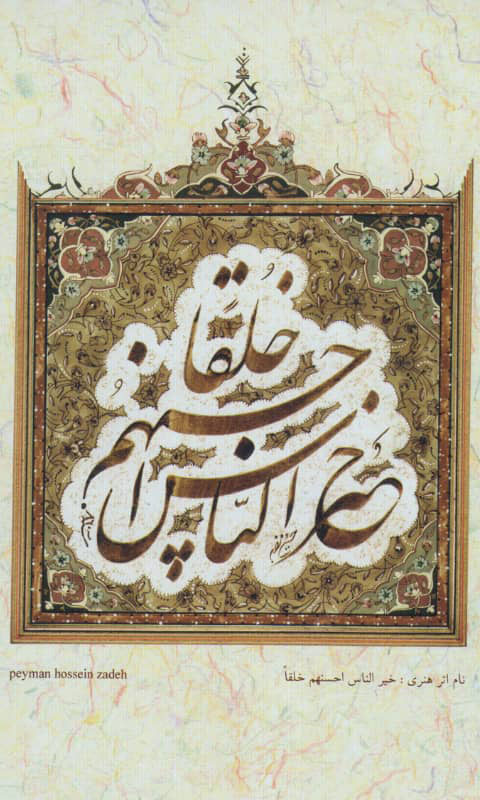 خیر الناس احسنهم خلقاً
peyman hossein zadeh
نام اثر هنری : خیر الناس احسنهم خلقاً